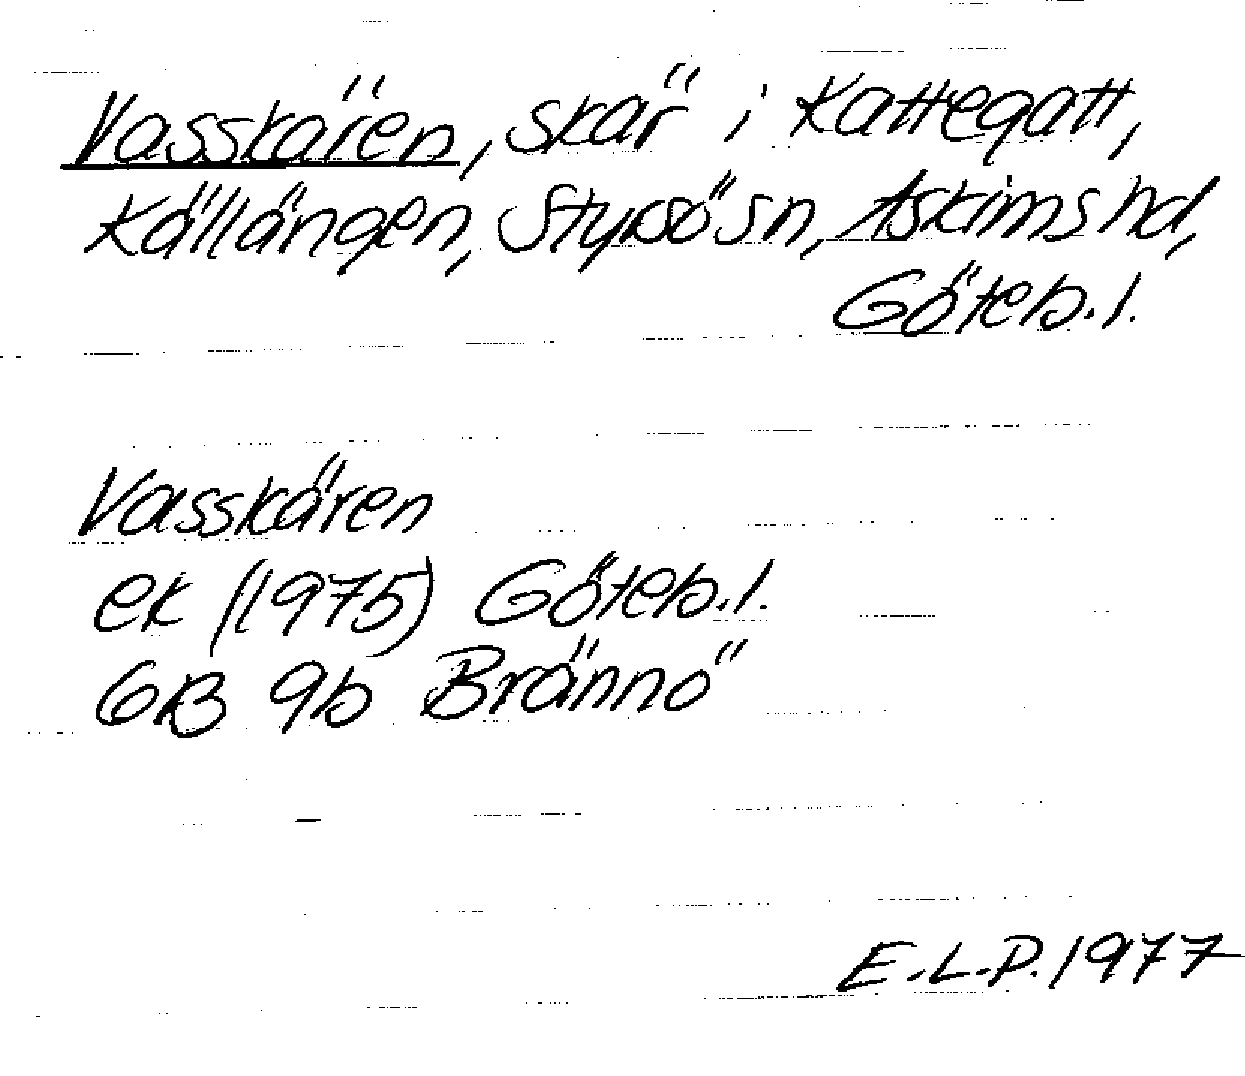 Vasskären, skär i Kattegatt,
Källängen, Styrsö sn, Askims hd,
Göteb.l.
Vasskären
ek (1975) Göteb.l.
6B 9b Brännö
E.L.P. 1977